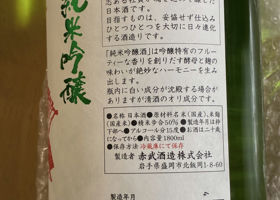 純米吟醸
日本酒です。
目指すものは、妥協せず仕込み
ひとつひとつを大切に日々進化
する酒造りです。
「純米吟醸酒」は吟醸特有のフルー
ティーな香りを創りだす酵母と麹の
味わいが絶妙なハーモニーを生み
出します。
瓶内に白い成分が沈殿する場合が
ありますが清酒のオリ成分です。
●名称 日本酒●原材料名 米(国産)、米麹
(国産米)●精米歩合50%●製造年月は枠
下部へ●アルコール分15度●お酒は二十歳
になってから●内容量1800ml
●保存方法 冷蔵庫にて保存
製造者 赤武酒造株式会社
岩手県盛岡市北飯岡1-8-60
製造年月